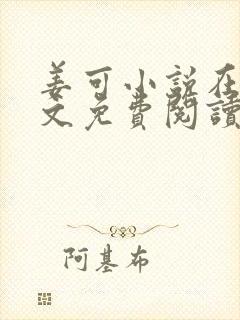 姜可小说在
文免費閱讀
阿基布